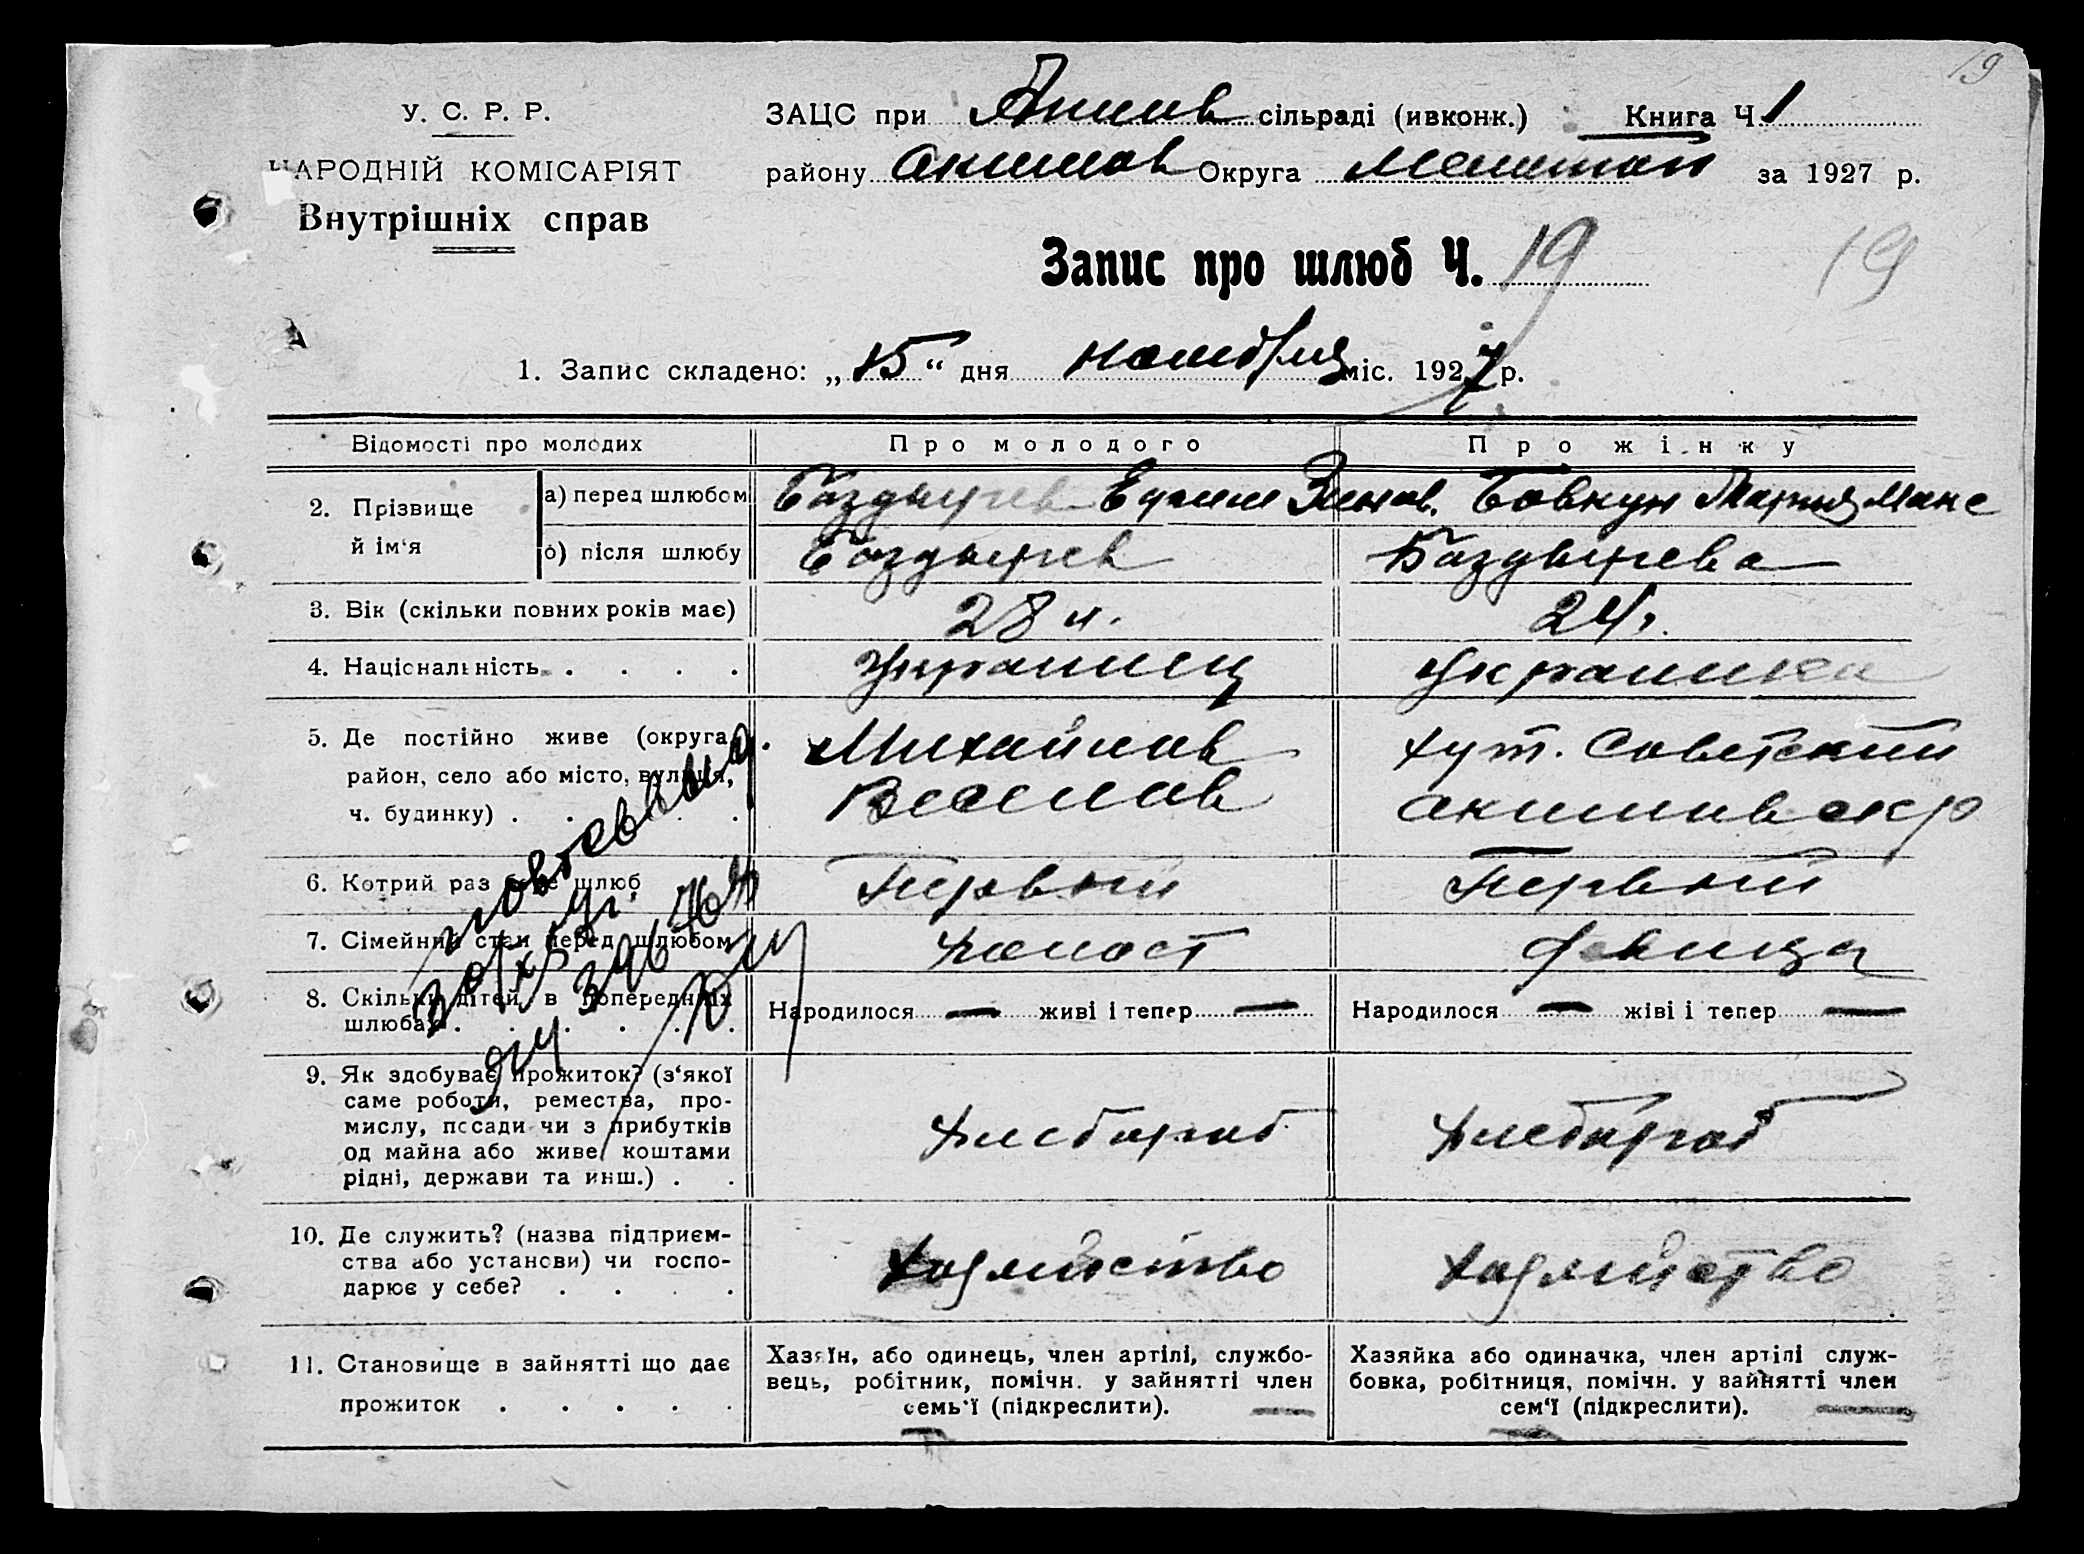 19
У. С. Р. Р.
НАРОДНІЙ КОМІСАРІЯТ
Внутрішніх справ
ЗАЦС при сільраді (ивконк.) Книга Ч. 1
району Акимов Округа Мелитоп за 1927 р.
Запис про шлюб Ч. 19
19
1. Запис складено: „ 15 “ дня ноября міс. 1927 р.
Відомості про молодих
Про молодого
Про жінку
2. Прізвище й ім‘я
а) перед шлюбом
Баздырев Ефим Зинов.
Бовкун Мария Макс
б) після шлюбу
Баздырев
Баздырева
3. Вік (скільки повних років має)
28 л.
24
4. Національність . . . .
Украинец
Украинка
5. Де постійно живе (округа,
район, село або місто, вулиця,
ч. будинку) . . . . .
Михайлов
Веселов
Хут. Советский
Акимов окр
6. Котрий раз бере шлюб
Первый
Первый
7. Сімейний стан перед шлюбом
Холост
девица
8. Скільки дітей в попередніх
шлюбах . . . . . .
Народилося — живі і тепер —
Народилося — жіві і тепер —
9. Як здобуває прожиток? (з‘якої
саме роботи, ремества, про-
мислу, посади чи з прибутків
од майна або живе коштами
рідні, держави та инш.) . .
Хлебороб
Хлебороб
10. Де служить? (назва підприєм-
ства або установи) чи госпо-
дарює у себе? . . . .
Хозяйство
Хозяйство
11. Становище в зайнятті що дає
прожиток . . . . .
Хазяїн, або одинець, член артілі, службо-
вець, робітник, помічн. у зайнятті член
семь‘ї (підкреслити).
Хазяйка або одиначка, член артілі служ-
бовка, робітниця, помічн. у зайнятті член
сем‘ї (підкреслити).